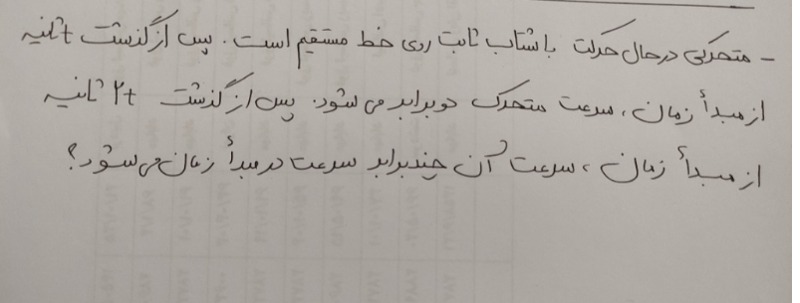 - متحرکی درحال حرکت با شتاب ثابت روی خط مستقیم است. پس از گذشت t ثانیه
از مبدأ زمان، سرعت متحرک دو برابر می شود. پس از گذشت ۲t ثانیه
از مبدأ زمان، سرعت آن چند برابر سرعت در مبدأ زمان می شود؟